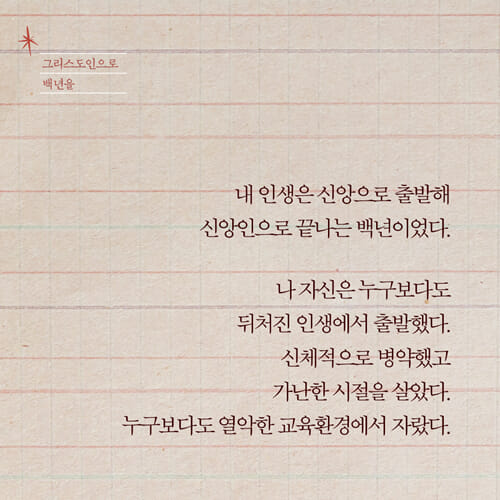 그리스도인으로
백년을
내 인생은 신앙으로 출발해
신앙인으로 끝나는 백년이었다.
나 자신은 누구보다도
뒤처진 인생에서 출발했다.
신체적으로 병약했고
가난한 시절을 살았다.
누구보다도 열악한 교육환경에서 자랐다.